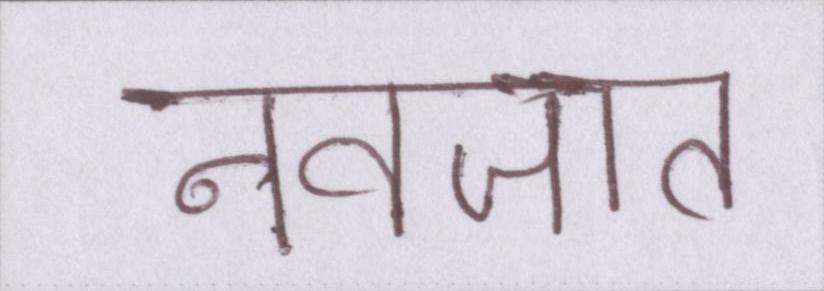 नवजात